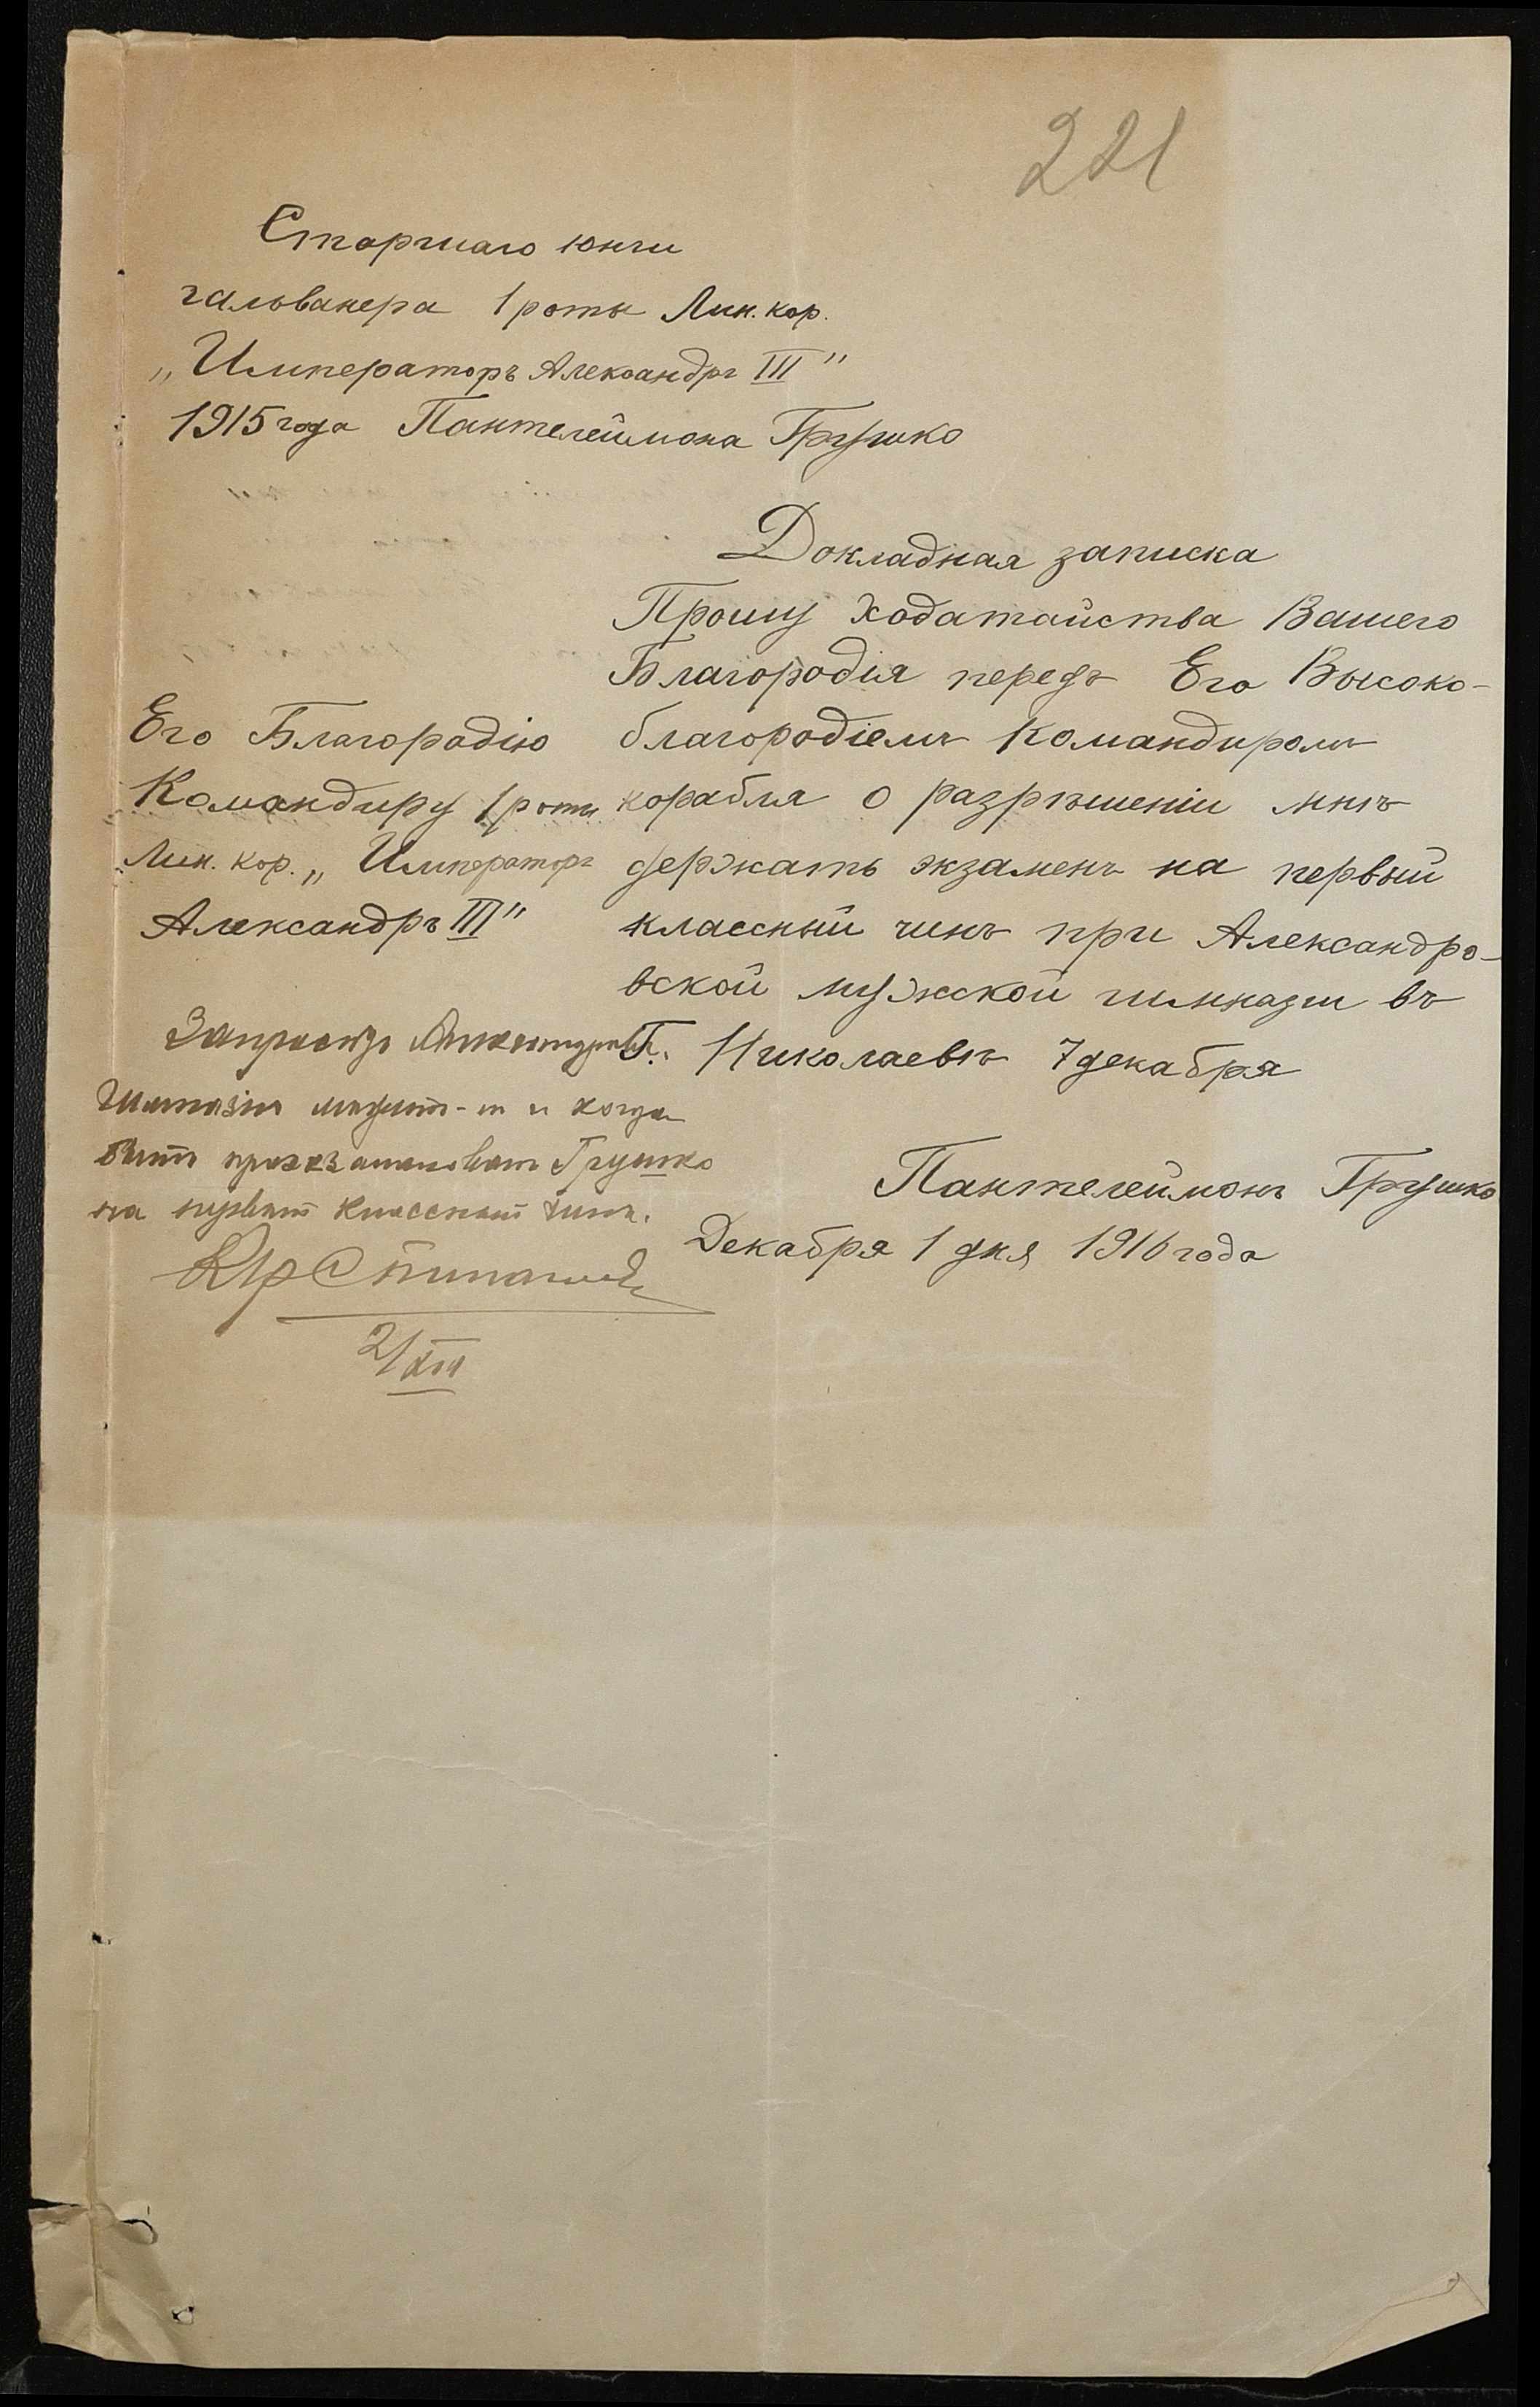 221
Старшаго юнги
гальванера 1 роты Лин. кор.
„Императоръ Александръ III"
1915 года Пантелеймона Грушко
Докладная записка
Прошу ходатайства Вашего
Благородия передъ Его Высоко-
благородіемъ командиромъ
корабля о разрѣшеніи мнѣ
держать экзаменъ на первый
классный чинъ при Александро-
вской мужской гимназии въ
Г. Николаевѣ 7 декабря
Пантелеймонъ Грушко
Декабря 1 дня 1916 года
Его Благородію
Командиру 1 роты
Лин. кор. „Императоръ
Александръ III"
Запросить
Гимназію можетъ-ли и когда
быть проэкзаменованъ Грушко
на первый классный чинъ.
2/XII